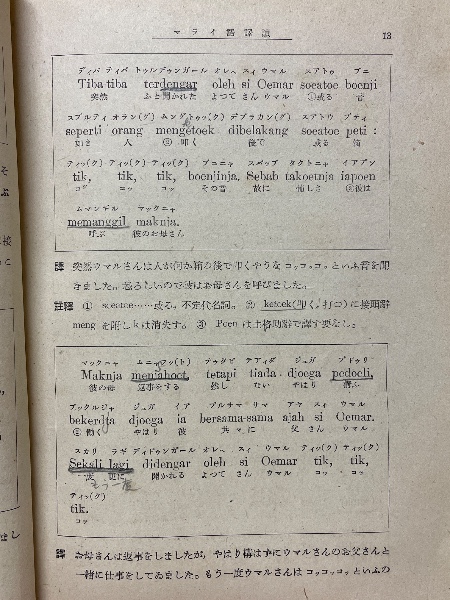 マライ語譯讀
13
ティバ ティバ トゥルデゥンガール オレヘ スィ ウマル スアトゥ ブニ
Tiba tiba terdengar oleh si Oemar soeatoe boenji
突然 ふと聞かれた よつて さん ウマル ①或る 音
スプルティ オラン(グ) ムングトゥッ(ク) デブラカン(グ) スアトゥ プティ
seperti orang mengetoek dibelakang soeatoe peti :
如き 人 ② 叩く 後で 或る 箱
ティッ(ク) ティッ(ク) ティッ(ク) ブニニャ スバッブ タクトニャ イアプン
tik, tik, tik, boenjinja. Sebab takoetnja iapoen
コツ コッ コッ その音 故に 怖しさ ③彼は
ムマンギル マックニャ
memanggil maknja.
呼ぶ 彼のお母さん
譯 突然ウマルさんは人が何か箱の後で叩くやうな コッコッコッ といふ音を聞
きました。恐ろしいので彼はお母さんを呼びました。
註釋 ① soeatoe……或る。不定代名詞。 ② ketoek(叩く。打つ)に接頭辭
meng を附し k は消失す。 ③ Poen は主格助辭で譯す要なし。
マックニャ ムニャフッ(ト) テタピ ティアダ ジュガ プドゥリ
Maknja menjahoet, tetapi tiada djoega pedoeli,
彼の母 返事をする 然し ない やはり 構ふ
ブックルジャ ジュガ イア ブルサマ サマ アヤ スィ ウマル
bekerdja djoega ia bersama-sama ajah si Oemar.
② 働く やはり 彼 共々に 父 さん ウマル
スカリ ラギ ディドゥンガール オレヘ スィ ウマル ティッ(ク) ティッ(ク)
Sekali lagi didengar oleh si Oemar tik, tik,
一度 更に 聞かれる よつて さん ウマル コッ コッ
もう一度
ティッ(ク)
tik.
コッ
譯 お母さんは返事をしましたが、やはり構はずにウマルさんのお父さんと
一緒に仕事をしてゐました。もう一度ウマルさんは コッコッコッ といふの